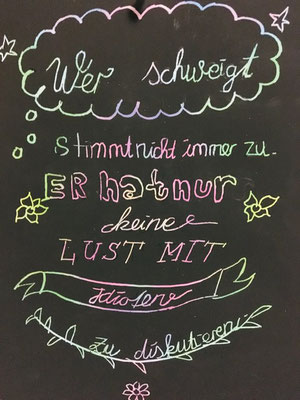 Wer schweigt
Stimmt nicht immer zu.
ER hat nur
keine
LUST MIT
Idioten
Zu diskutieren